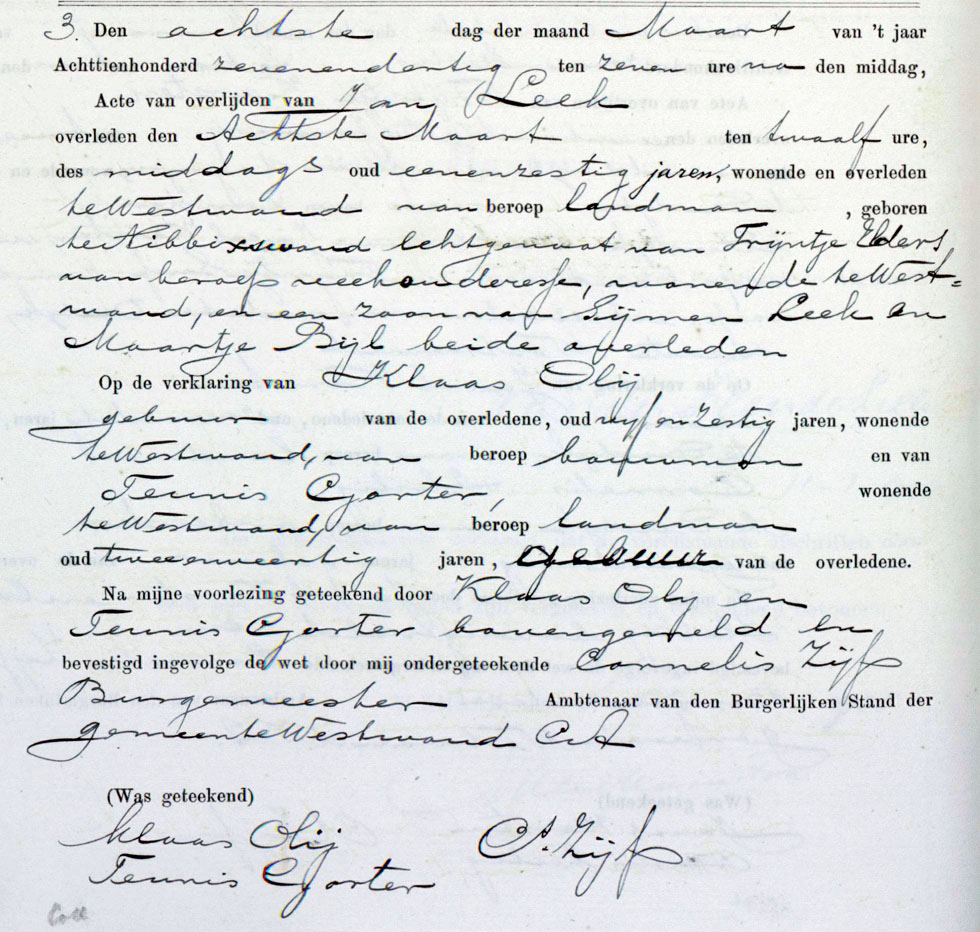 3. Den achtste dag der maand Maart van 't jaar
Achttienhonderd zevenendertig ten zeven ure na den middag,
Acte van overlijden van Jan Leek
overleden den Achtste Maart ten twaalf ure,
des middags oud eenenzestig jaren, wonende en overleden
te Westwoud van beroep landman, geboren
te Nibbixwoud Echtgenoot van Trijntje Elders
van beroep veehouderesse, wonende te West=
woud, en een zoon van Sijmen Leek en
Maartje Bijl beide overleden
Op de verklaring van Klaas Olij
gebuur van de overledene, oud vijfenzestig jaren, wonende
te Westwoud, van beroep bouwman en van
Teunis Gorter, wonende
te Westwoud, van beroep landman
oud tweeenveertig jaren, gebuur van de overledene.
Na mijne voorlezing geteekend door Klaas Olij en
Teunis Gorter bovengemeld en
bevestigd ingevolge de wet door mij ondergeteekende Cornelis Zijp
Burgemeester Ambtenaar van den Burgerlijken Stand der
gemeente Westwoud CA
(Was geteekend)
Klaas Olij Cs. Zijp
Teunis Gorter
Coll